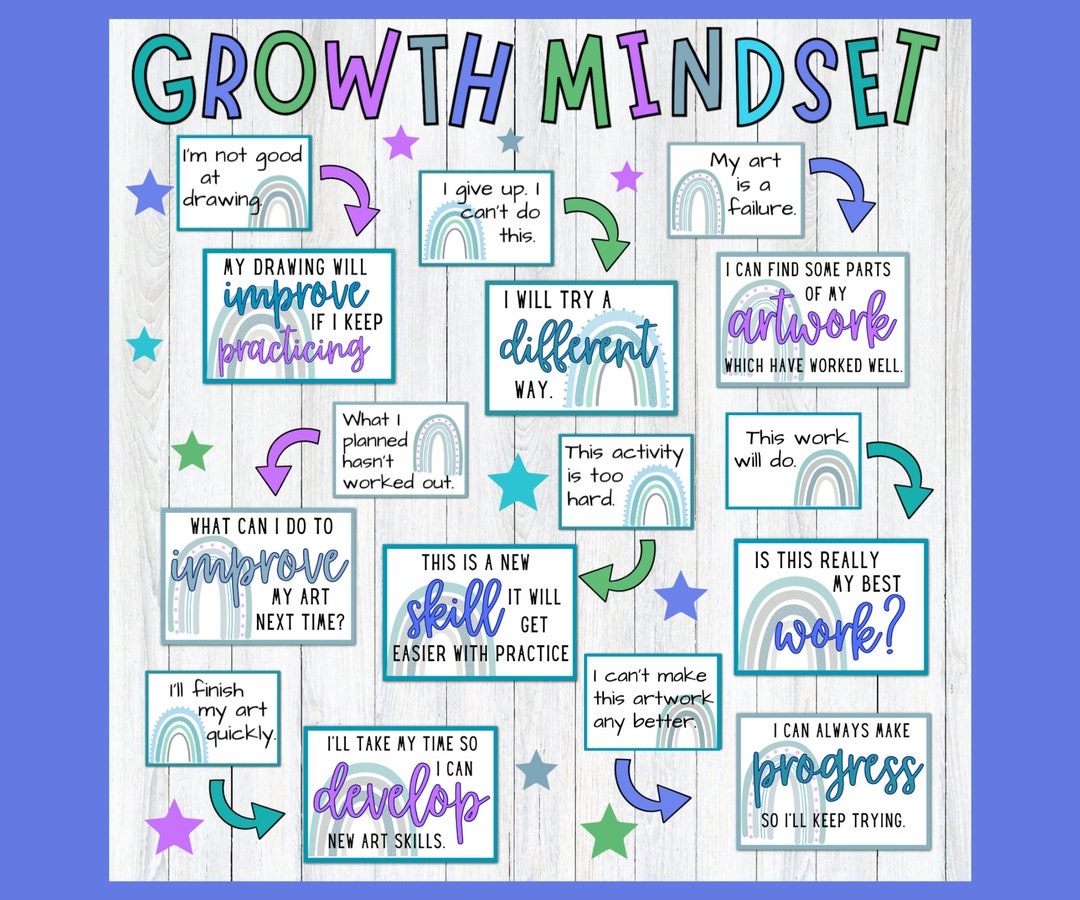 GROWTH MINDSET
I'm not good
at
drawing.
MY DRAWING WILL
improve
IF I KEEP
practicing
I give up. I
can't do
this.
I WILL TRY A
different
WAY.
My art
is a
failure.
I CAN FIND SOME PARTS
OF MY
artwork
WHICH HAVE WORKED WELL.
What I
planned
hasn't
worked out.
WHAT CAN I DO TO
improve
MY ART
NEXT TIME?
This activity
is too
hard.
THIS IS A NEW
skill IT WILL
GET
EASIER WITH PRACTICE
This work
will do.
IS THIS REALLY
MY BEST
work?
I'll finish
my art
quickly.
I'LL TAKE MY TIME SO
I CAN
develop
NEW ART SKILLS.
I can't make
this artwork
any better.
I CAN ALWAYS MAKE
progress
SO I'LL KEEP TRYING.